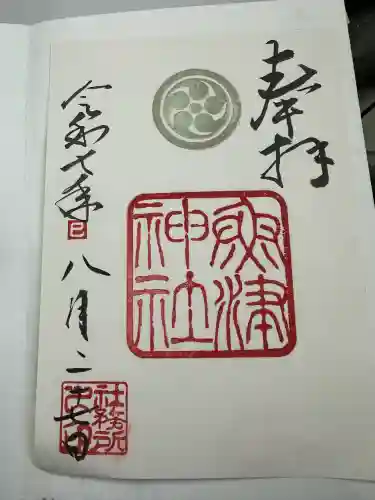 奉拝
魚津
神社
令和七年
巳
八月二十七日
社務所